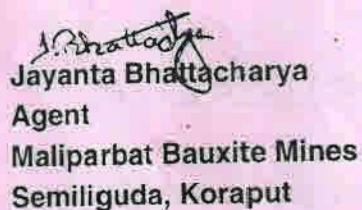 J. Bhattacharya
Jayanta Bhattacharya
Agent
Maliparbat Bauxite Mines
Semiliguda, Koraput